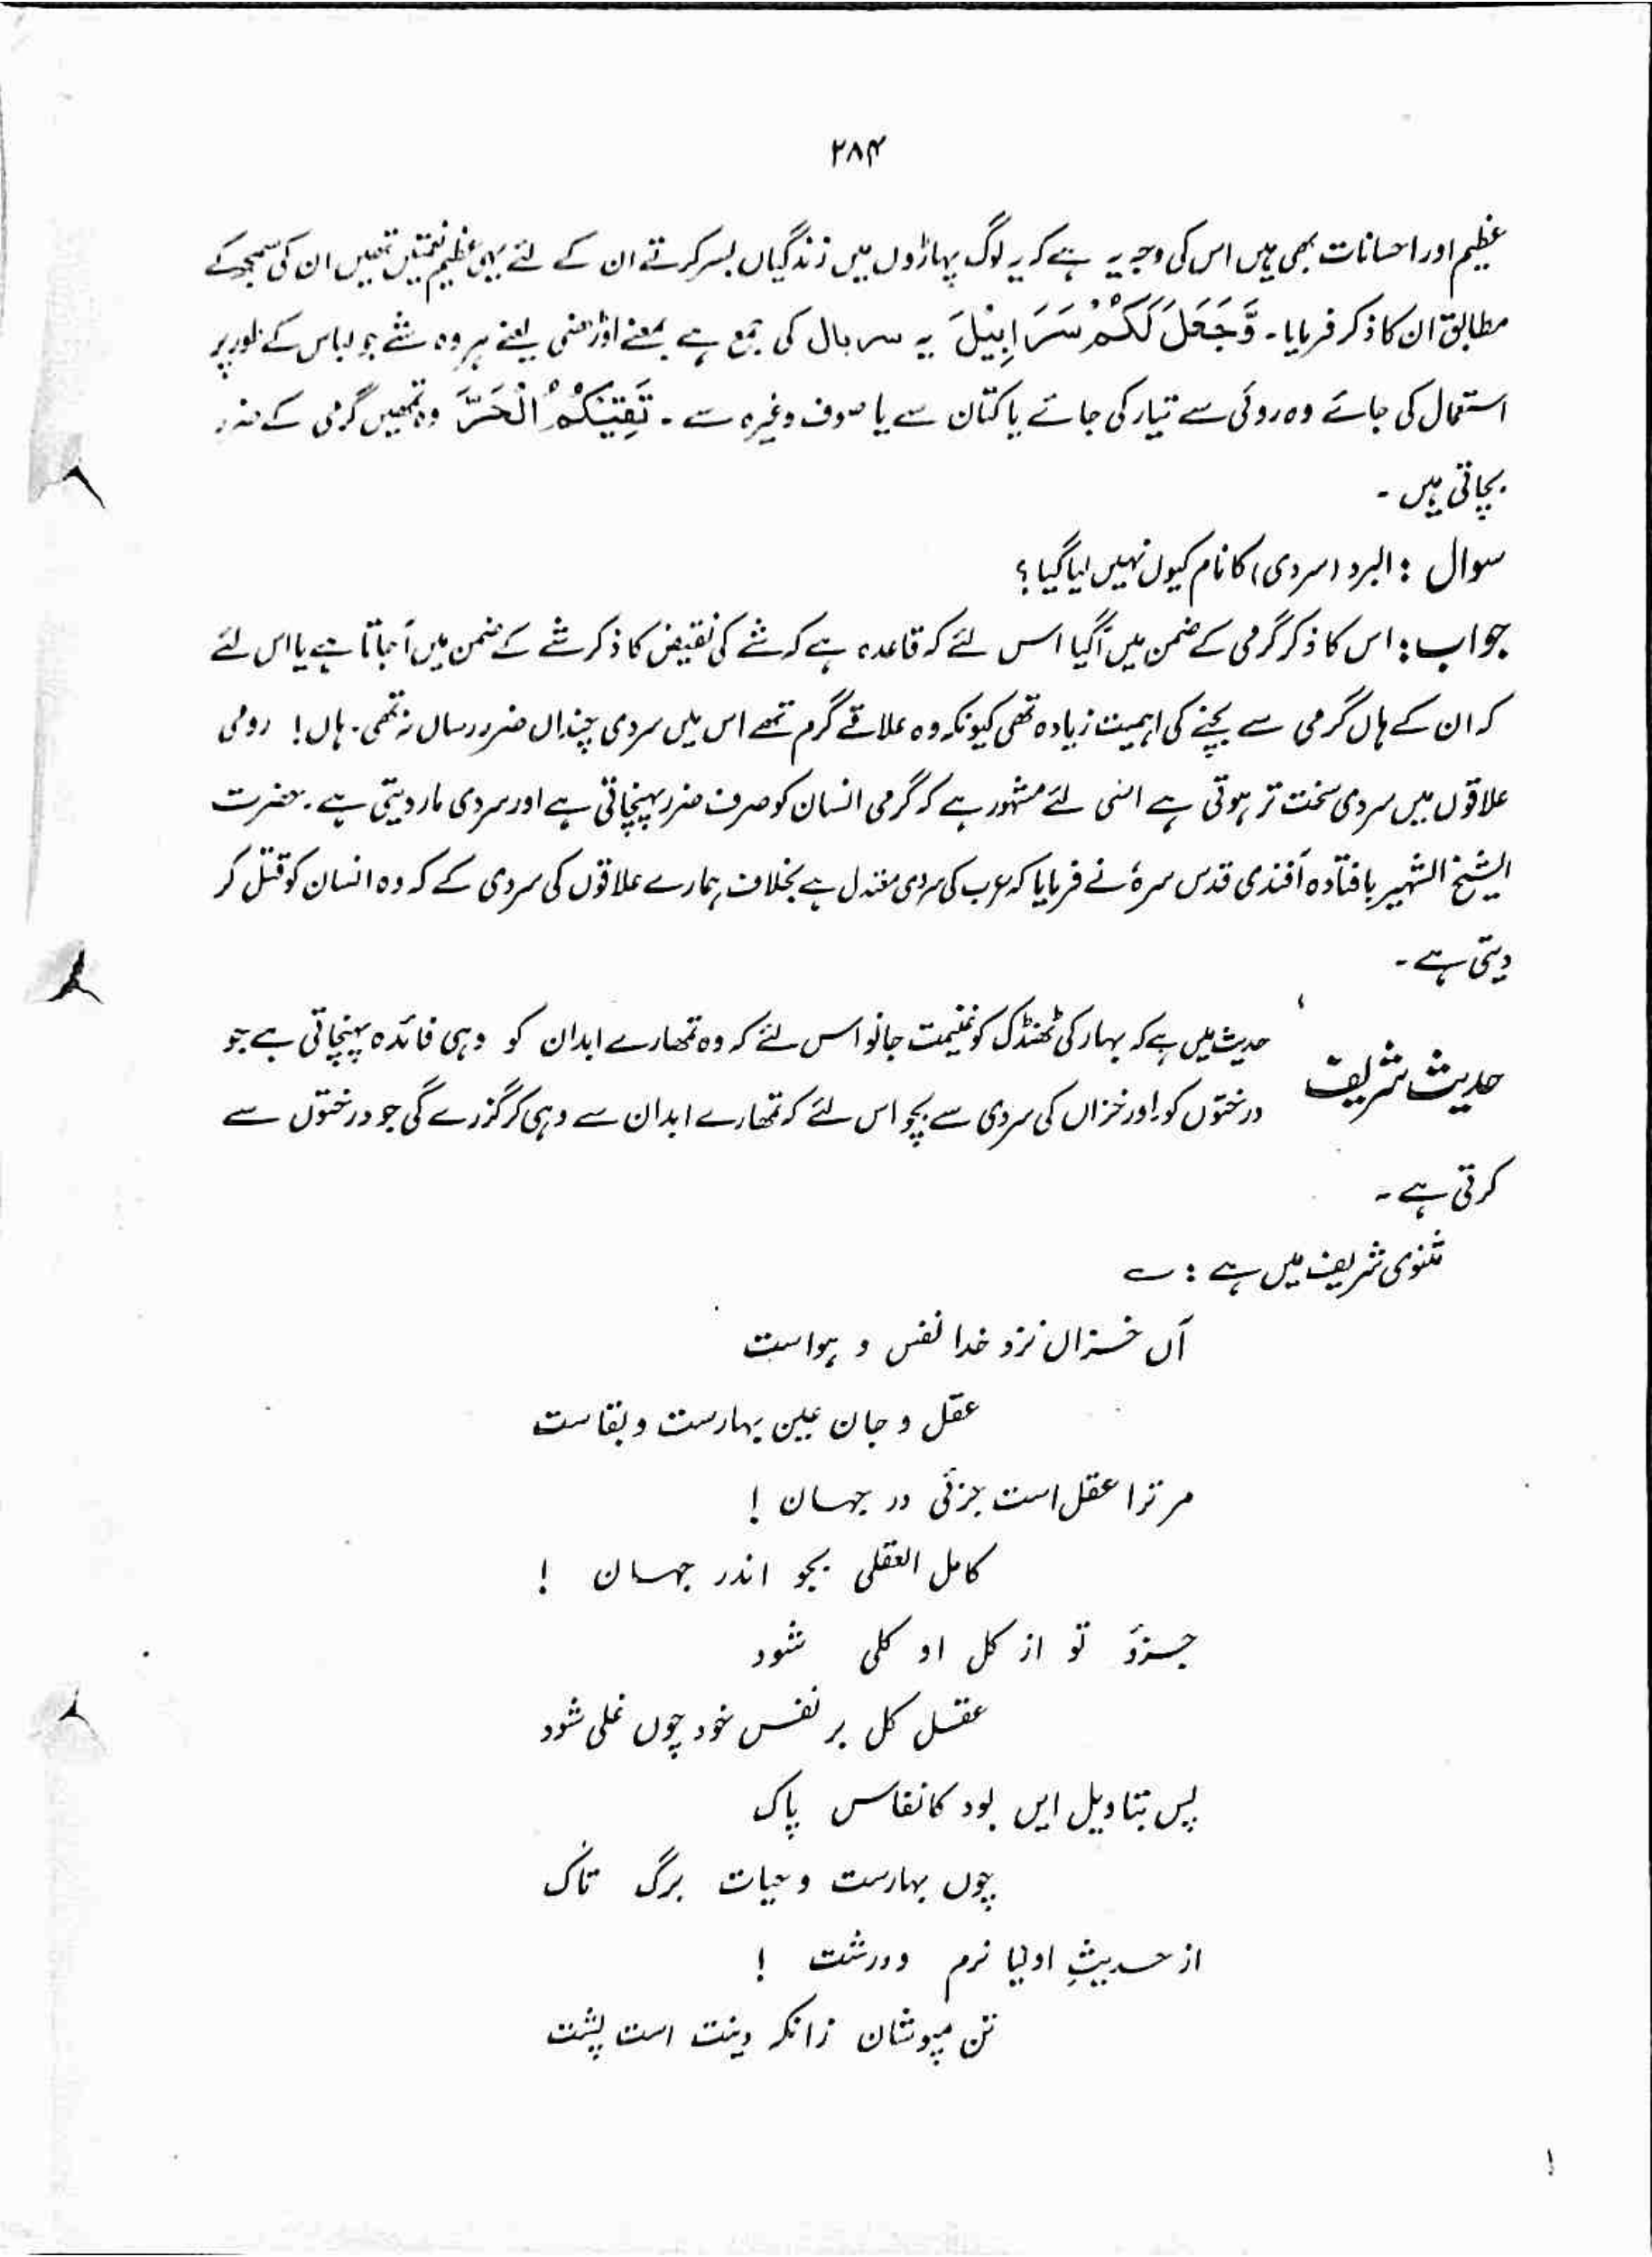 ۲۸۴
عظیم اور احسانات بھی ہیں اس کی وجہ یہ ہے کہ یہ لوگ پہاڑوں میں زندگیاں بسر کرتے ان کے لئے یہی عظیم نعمتیں تھیں ان کی سمجھ کے
مطابق ان کا ذکر فرمایا۔ وَّجَعَلَ لَكُمْ سَرَابِيْلَ یہ سربال کی جمع ہے بمعنے اوڑھنی یعنے ہر وہ شے جو لباس کے طور پر
استعمال کی جائے وہ روئی سے تیار کی جائے یا کتان سے یا صوف وغیرہ سے۔ تَقِيْكُمُ الْحَرَّ وہ تمھیں گرمی کے ضرر
بچاتی ہیں۔
سوال : البرد (سردی) کا نام کیوں نہیں لیا گیا؟
جواب : اس کا ذکر گرمی کے ضمن میں آگیا اس لئے کہ قاعدہ ہے کہ شے کی نقیض کا ذکر شے کے ضمن میں آجاتا ہے یا اس لئے
کہ ان کے ہاں گرمی سے بچنے کی اہمیت زیادہ تھی کیونکہ وہ علاقے گرم تھے اس میں سردی چنداں ضرر رساں نہ تھی۔ ہاں! رومی
علاقوں میں سردی سخت تر ہوتی ہے اسی لئے مشہور ہے کہ گرمی انسان کو صرف ضرر پہنچاتی ہے اور سردی مار دیتی ہے۔ حضرت
الشیخ الشہیر بافتادہ آفندی قدس سرہٗ نے فرمایا کہ عرب کی سردی معتدل ہے بخلاف ہمارے علاقوں کی سردی کے کہ وہ انسان کو قتل کر
دیتی ہے۔
حدیث شریف حدیث میں ہے کہ بہار کی ٹھنڈک کو غنیمت جانو اس لئے کہ وہ تمھارے ابدان کو وہی فائدہ پہنچاتی ہے جو
درختوں کو۔ اور خزاں کی سردی سے بچو اس لئے کہ تمھارے ابدان سے وہی کر گزرے گی جو درختوں سے
کرتی ہے۔
مثنوی شریف میں ہے : ؎
آں خزاں نزد خدا نفس و ہواست
عقل و جان عین بہارست و بقاست
مر ترا عقل است جزئی در جہان !
کامل العقلی بجو اندر جہان !
جزؤ تو از کل او کلی شود
عقل کل بر نفس خود چوں غلی شود
پس بتاویل ایں بود کانفاس پاک
چوں بہارست و حیات برگ تاک
از حدیثِ اولیا نرم و درشت !
تن مپوشان زانکہ دینت است پشت